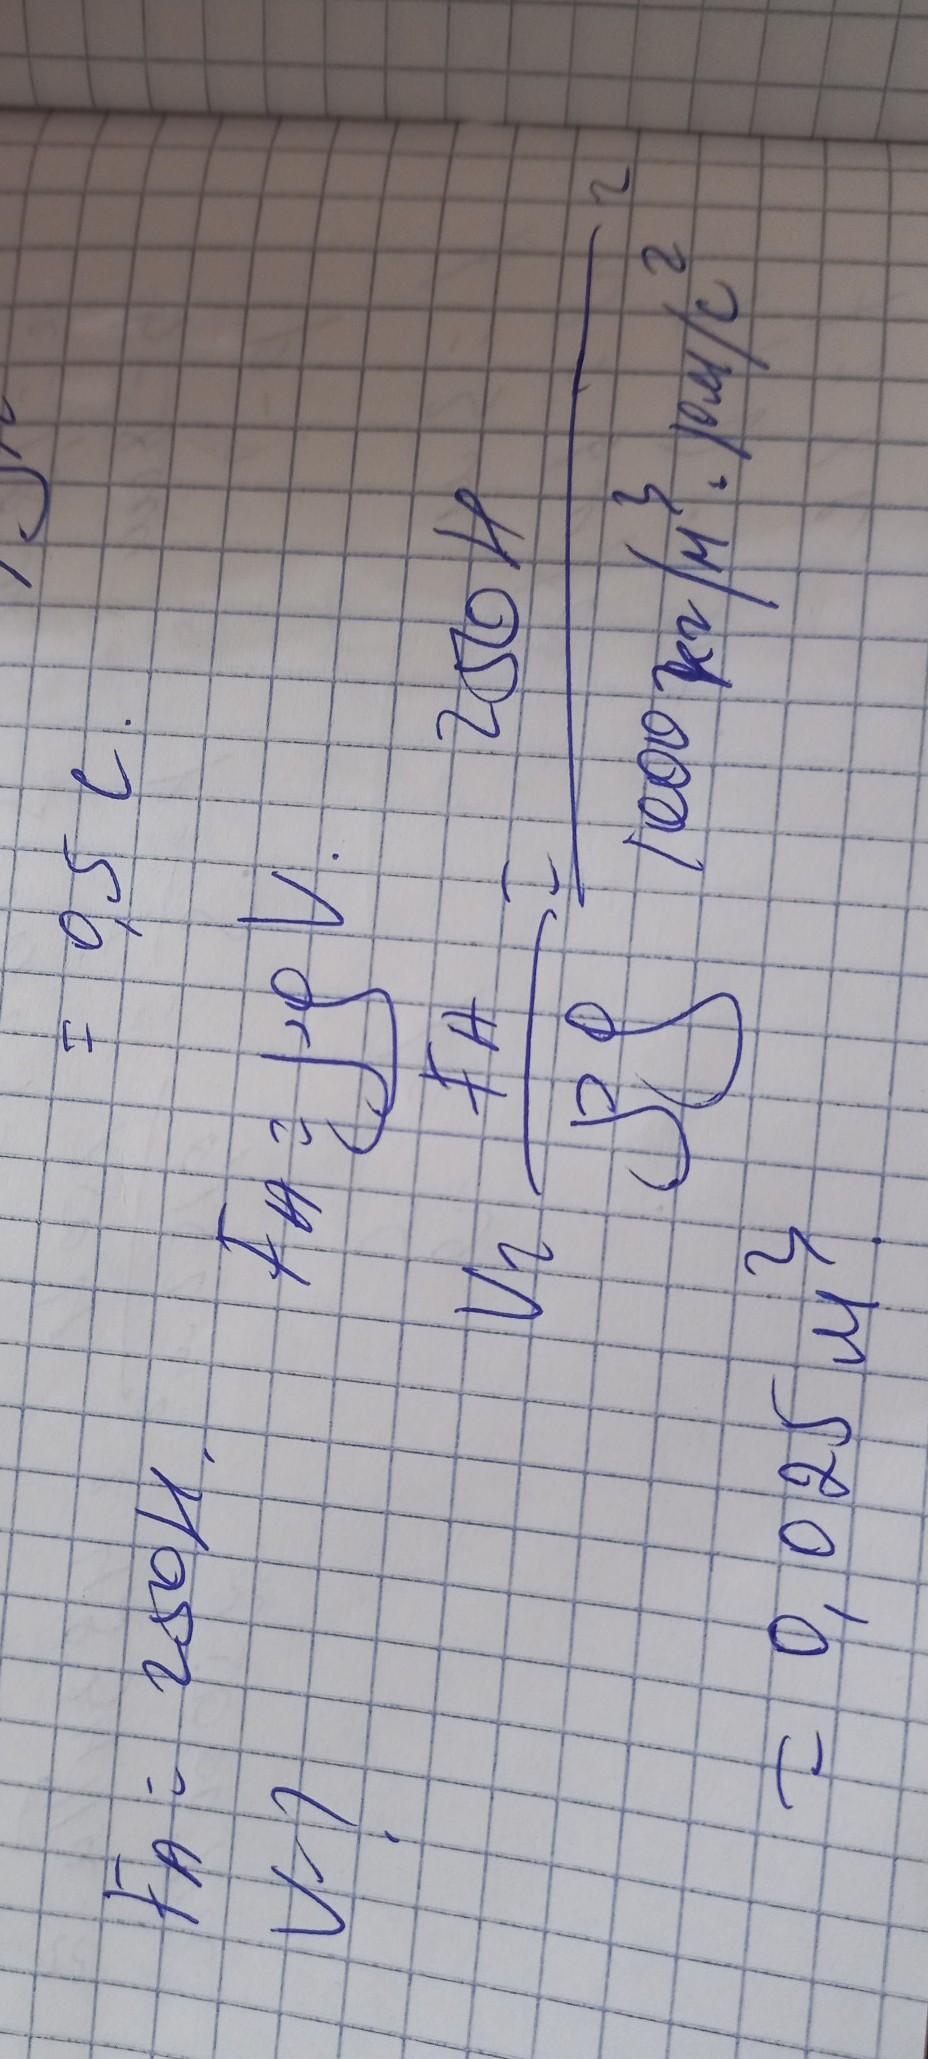 = 0,5 с.
FA = 250 Н.
FA = ρg V.
V-?
V = FA / ρg = 250 Н / 1000 кг/м³ · 10м/с² =
= 0,025 м³.